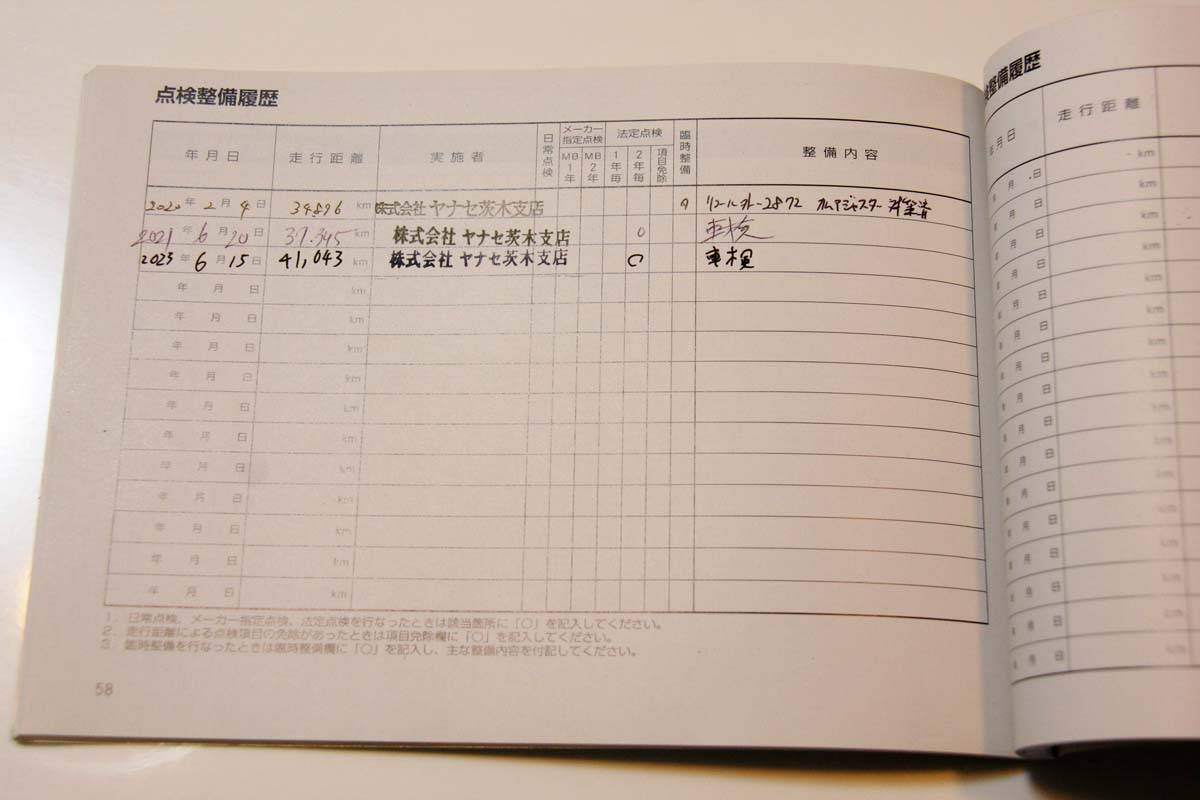 点検整備履歴
年月日 走行距離 実施者 日常点検 メーカー指定点検 MB1年 MB2年 法定点検 1年毎 2年毎 項目免除 臨時整備 整備内容
2020年2月4日 34896km 株式会社 ヤナセ茨木支店 リコール外-2872 カムアジャスター
2021年6月20日 37.345km 株式会社 ヤナセ茨木支店 ○ 車検
2023年6月15日 41,043km 株式会社 ヤナセ茨木支店 ○ 車検
年 月 日 km
年 月 日 km
年 月 日 km
年 月 日 km
年 月 日 km
年 月 日 km
年 月 日 km
年 月 日 km
年 月 日 km
年 月 日 km
年 月 日 km
1. 日常点検、メーカー指定点検、法定点検を行なったときは該当箇所に「○」を記入してください。
2. 走行距離による点検項目の免除があったときは項目免除欄に「○」を記入してください。
3. 臨時整備を行なったときは臨時整備欄に「○」を記入し、主な整備内容を付記してください。
58
検整備履歴
年月日 走行距離
月 日 km
年 月 日 km
年 月 日 km
年 月 日 km
年 月 日 km
年 月 日 km
年 月 日 km
年 月 日 km
年 月 日 km
年 月 日 km
年 月 日 km
年 月 日 km
年 月 日 km
年 月 日 km
年 月 日 km
年 月 日 km